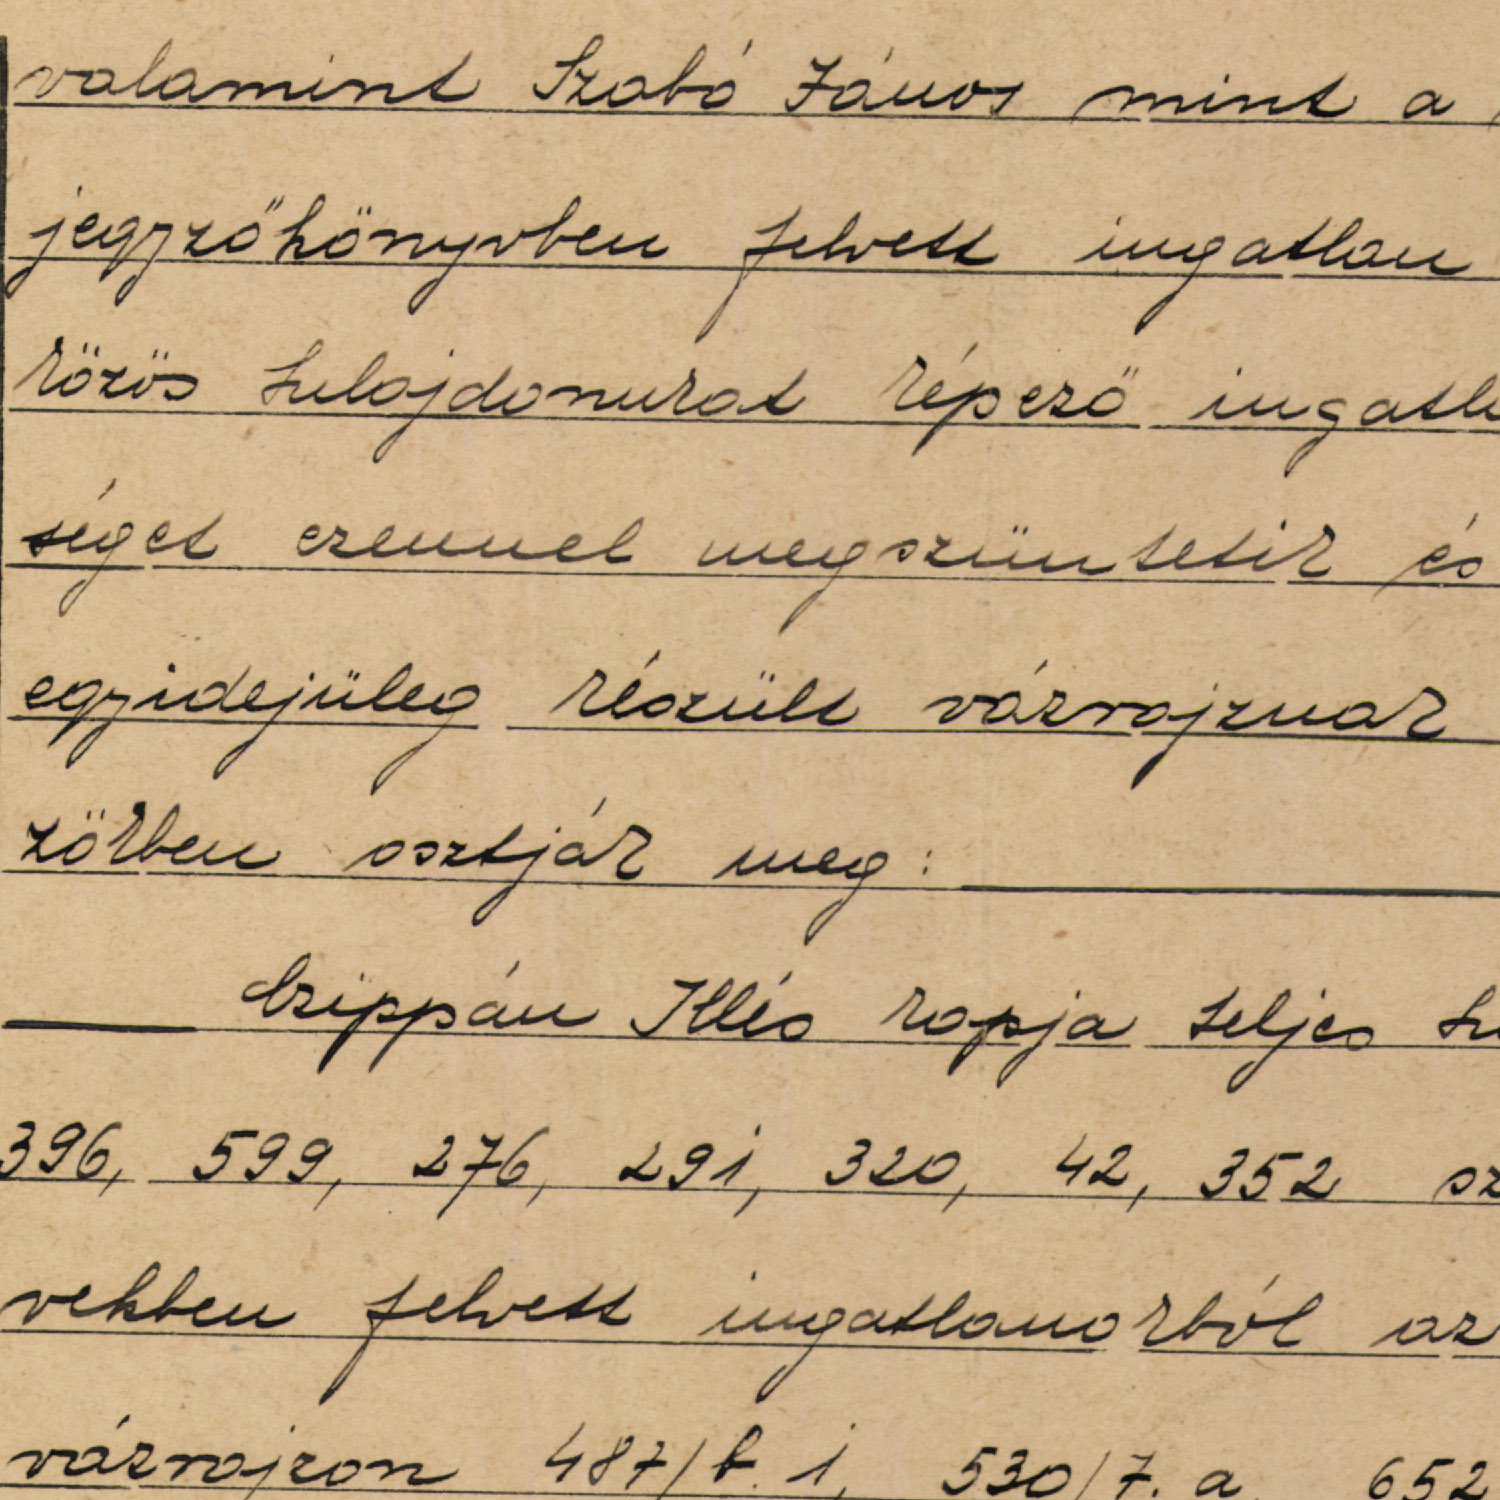 valamint Szabó János mint a
jegyzőkönyvben felvett ingatlan
közös tulajdonukat képező ingatla
séget ezennel megszüntetik és
egyidejüleg készült vázrajznak
zökben osztják meg:
Czippán Illés kapja teljes tu
396, 599, 276, 291, 320, 42, 352 sz
vekben felvett ingatlanokból az
vázrajzon 487/b. 1, 530/7. a, 652